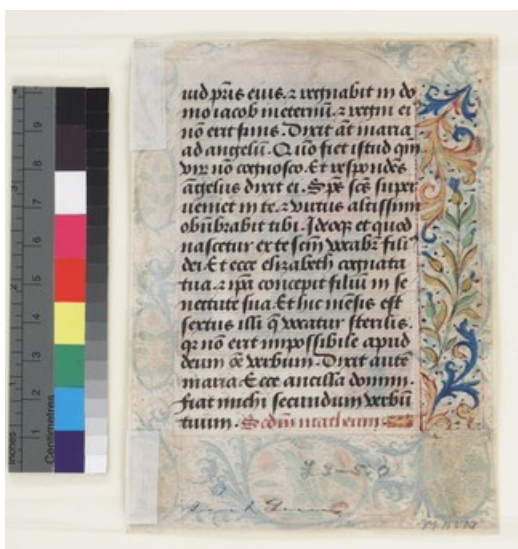 uid pr̃is eius. ⁊ regnabit in do
mo iacob in eternũ. ⁊ regni ei
nõ erit finis. Dixit aũt maria
ad angelũ. Quõ fiet istud qm̃
virũ nõ cognosco. Et respondẽs
ãgelus dixit ei. Spũs sc̃s super
ueniet in te. ⁊ virtus altissimi
obũbrabit tibi. Ideoqꝫ et quod
nascetur ex te sc̃m vocabr̃ fili
dei. Et ecce elizabeth cognata
tua. ⁊ ip̃a concepit filiũ in se
nectute sua. Et hic mẽsis est
sextus illi q̃ vocatur sterilis.
qz nõ erit impossibile apud
deum oẽ verbum. Dixit autẽ
maria. Ecce ancilla domini.
fiat michi secundum verbũ
tuum. Scdm̃ matheum.
Inches
Centimetres